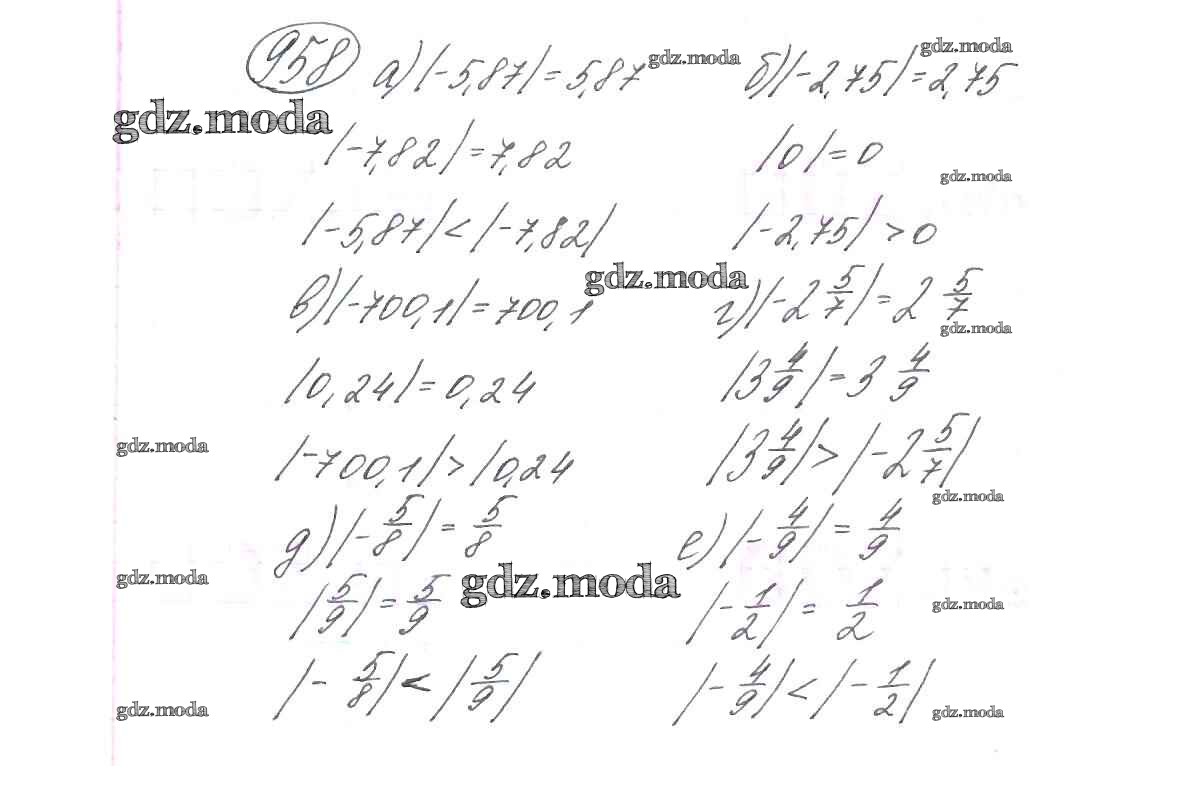 958 а) |-5,87| = 5,87 gdz.moda б) |-2,75| = 2,75 gdz.moda
gdz.moda
|-7,82| = 7,82 |0| = 0
gdz.moda
|-5,87| < |-7,82| |-2,75| > 0
gdz.moda
в) |-700,1| = 700,1 г) |-2 5/7| = 2 5/7
gdz.moda
|0,24| = 0,24 |3 4/9| = 3 4/9
gdz.moda
|-700,1| > |0,24 |3 4/9| > |-2 5/7|
gdz.moda
д) |-5/8| = 5/8 е) |-4/9| = 4/9
gdz.moda gdz.moda
|5/9| = 5/9 |-1/2| = 1/2
gdz.moda
|-5/8| < |5/9| |-4/9| < |-1/2|
gdz.moda gdz.moda